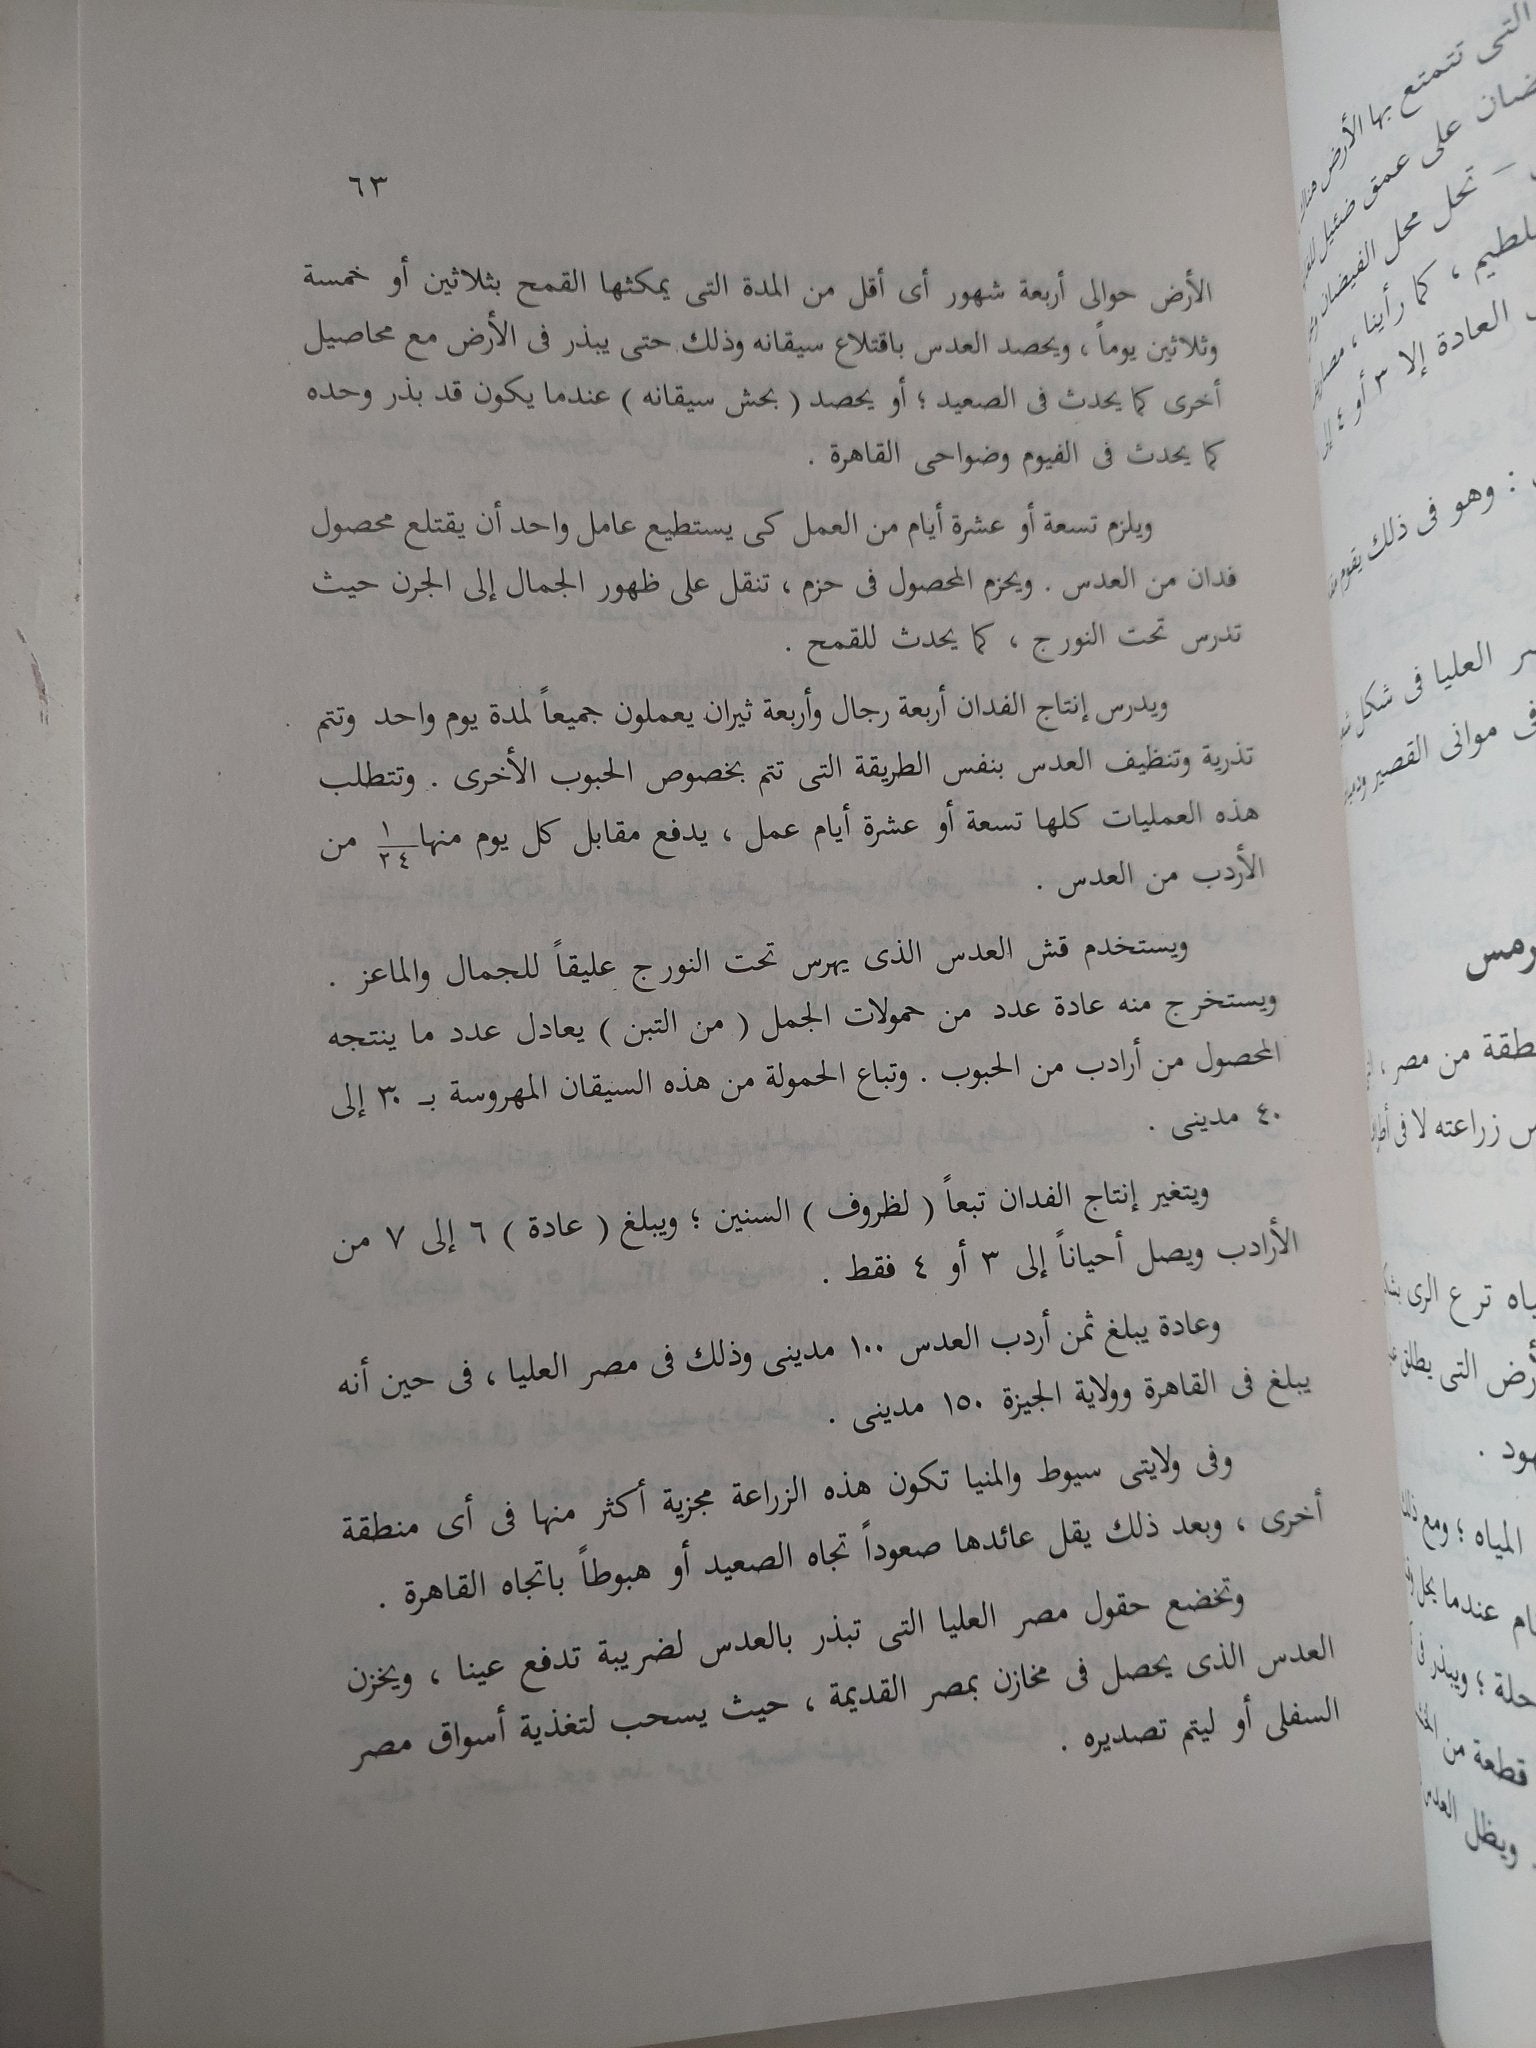 ٦٣
الأرض حوالى أربعة شهور أى أقل من المدة التى يمكثها القمح بثلاثين أو خمسة
وثلاثين يوماً ، ويحصد العدس باقتلاع سيقانه وذلك حتى يبذر فى الأرض مع محاصيل
أخرى كما يحدث فى الصعيد ؛ أو يحصد ( بحش سيقانه ) عندما يكون قد بذر وحده
كما يحدث فى الفيوم وضواحى القاهرة .
ويلزم تسعة أو عشرة أيام من العمل كى يستطيع عامل واحد أن يقتلع محصول
فدان من العدس . ويحزم المحصول فى حزم ، تنقل على ظهور الجمال إلى الجرن حيث
تدرس تحت النورج ، كما يحدث للقمح .
ويدرس إنتاج الفدان أربعة رجال وأربعة ثيران يعملون جميعاً لمدة يوم واحد وتتم
تذرية وتنظيف العدس بنفس الطريقة التى تتم بخصوص الحبوب الأخرى . وتتطلب
هذه العمليات كلها تسعة أو عشرة أيام عمل ، يدفع مقابل كل يوم منها ١/٢٤ من
الأردب من العدس .
ويستخدم قش العدس الذى يهرس تحت النورج عليقاً للجمال والماعز .
ويستخرج منه عادة عدد من حمولات الجمل ( من التبن ) يعادل عدد ما ينتجه
المحصول من أرادب من الحبوب . وتباع الحمولة من هذه السيقان المهروسة بـ ٣٠ إلى
٤٠ مدينى .
ويتغير إنتاج الفدان تبعاً ( لظروف ) السنين ؛ ويبلغ ( عادة ) ٦ إلى ٧ من
الأرادب ويصل أحياناً إلى ٣ أو ٤ فقط .
وعادة يبلغ ثمن أردب العدس ١٠٠ مدينى وذلك فى مصر العليا ، فى حين أنه
يبلغ فى القاهرة وولاية الجيزة ١٥٠ مدينى .
وفى ولايتى سيوط والمنيا تكون هذه الزراعة مجزية أكثر منها فى أى منطقة
أخرى ، وبعد ذلك يقل عائدها صعوداً تجاه الصعيد أو هبوطاً باتجاه القاهرة .
وتخضع حقول مصر العليا التى تبذر بالعدس لضريبة تدفع عينا ، ويخزن
العدس الذى يحصل فى مخازن بمصر القديمة ، حيث يسحب لتغذية أسواق مصر
السفلى أو ليتم تصديره .
التى تتمتع بها الأرض
على عمق ضئيل
– تحل محل الفيضان
، كما رأينا ،
العادة إلا ٣ أو ٤
: وهو فى ذلك يقوم
العليا فى شكل
فى موانى القصير
من مصر ،
زراعته لا فى
ترع الرى
التى يطلق
المياه ؛ ومع ذلك
عندما يحل
؛ ويبذر فى
قطعة من
ويظل العدس